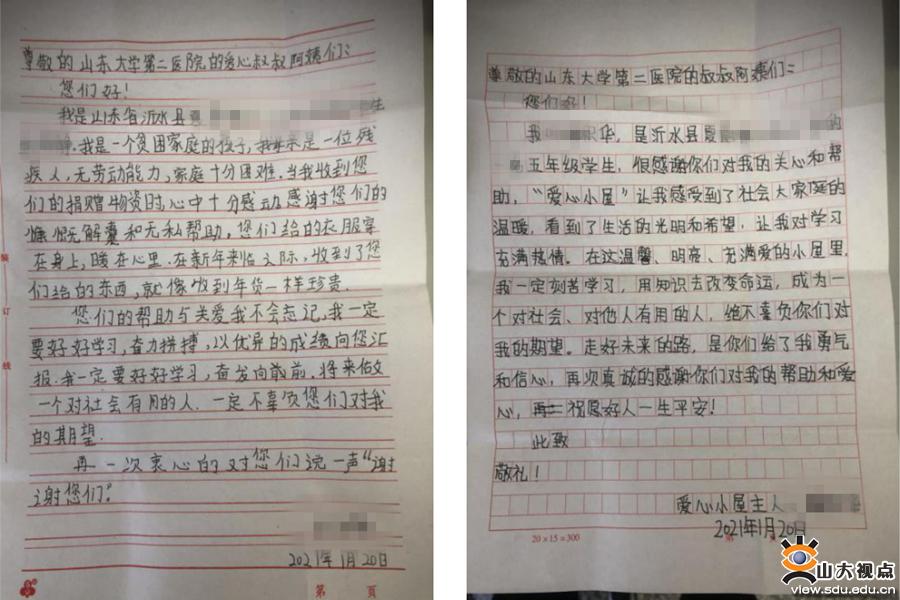 尊敬的山东大学第二医院的爱心叔叔阿姨们：
您们好！
我是山东省沂水县 生
我是一个贫困家庭的孩子，我母亲是一位残
疾人，无劳动能力，家庭十分困难。当我收到您
们的捐赠物资时，心中十分感动。感谢您们的
慷慨解囊和无私帮助。您们给的衣服穿
在身上，暖在心里。在新年来临之际，收到了您
们给的东西，就像收到年货一样珍贵.
您们的帮助与关爱我不会忘记，我一定
要好好学习，奋力拼搏，以优异的成绩向您汇
报。我一定要好好学习，奋发向前，将来做
一个对社会有用的人.一定不辜负您们对我
的期望.
再一次衷心的对您们说一声“谢
谢您们”
2021年1月20日
装
订
线
第 页
尊敬的山东大学第二医院的叔叔阿姨们：
您们好！
我 华，是沂水县夏 的
五年级学生，很感谢你们对我的关心和帮
助，“爱心小屋”让我感受到了社会大家庭的
温暖，看到了生活的光明和希望，让我对学习
充满热情。在这温馨、明亮、充满爱的小屋里，
我一定刻苦学习，用知识去改变命运，成为一
个对社会、对他人有用的人，绝不辜负你们对
我的期望。走好未来的路，是你们给了我勇气
和信心，再次真诚的感谢你们对我的帮助和爱
心，再二祝愿好人一生平安！
此致
敬礼！
爱心小屋主人
2021年1月20日
20×15=300
山大视点
view.sdu.edu.cn